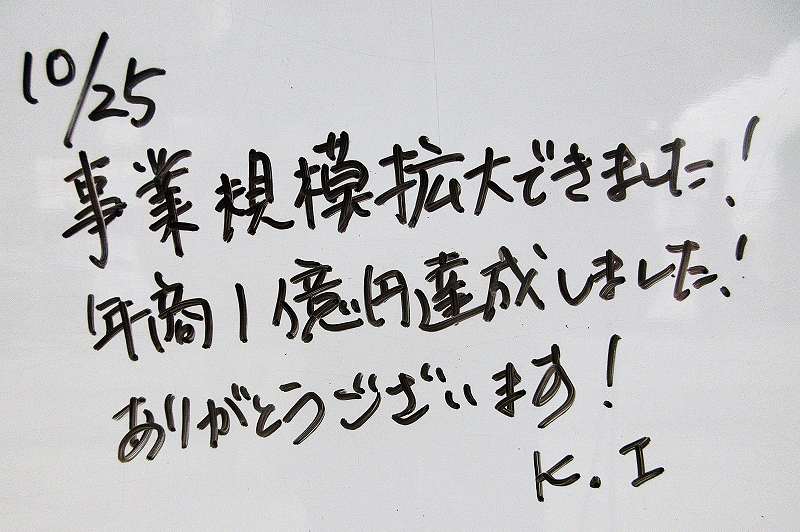 10/25
事業規模拡大できました！
年商1億円達成しました！
ありがとうございます！
K.I